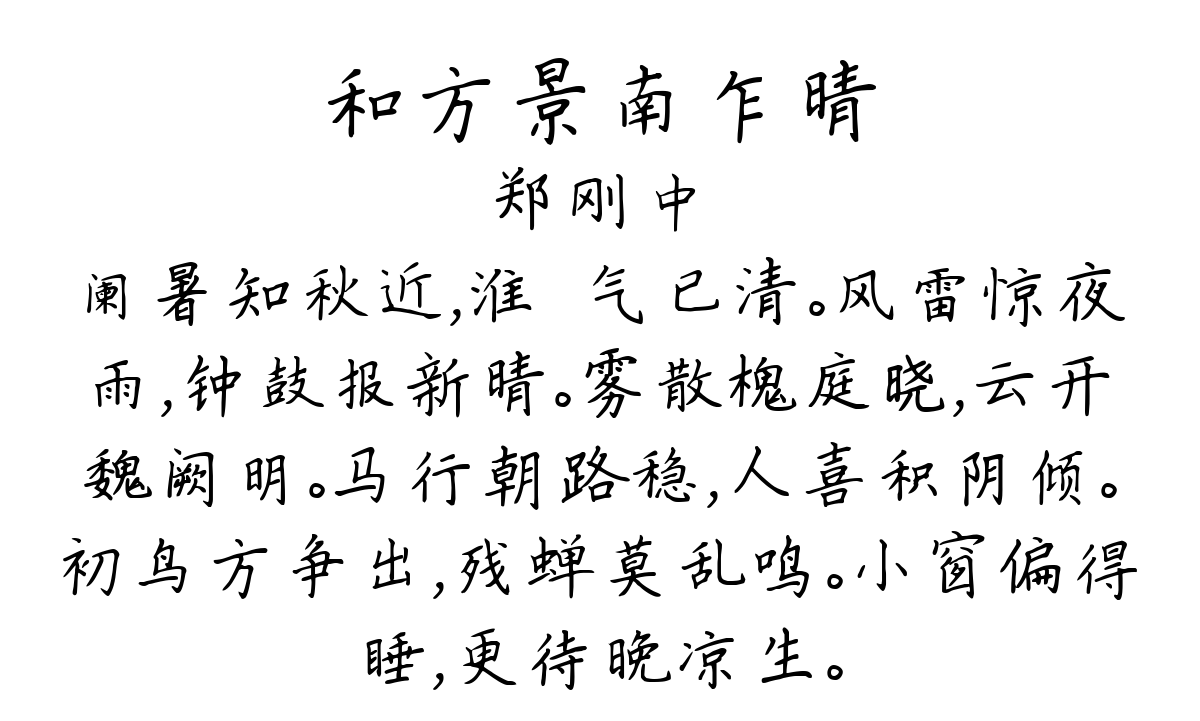 和方景南乍晴
郑刚中
阑暑知秋近,淮 气已清。风雷惊夜
雨,钟鼓报新晴。雾散槐庭晓,云开
魏阙明。马行朝路稳,人喜积阴倾。
初鸟方争出,残蝉莫乱鸣。小窗偏得
睡,更待晚凉生。